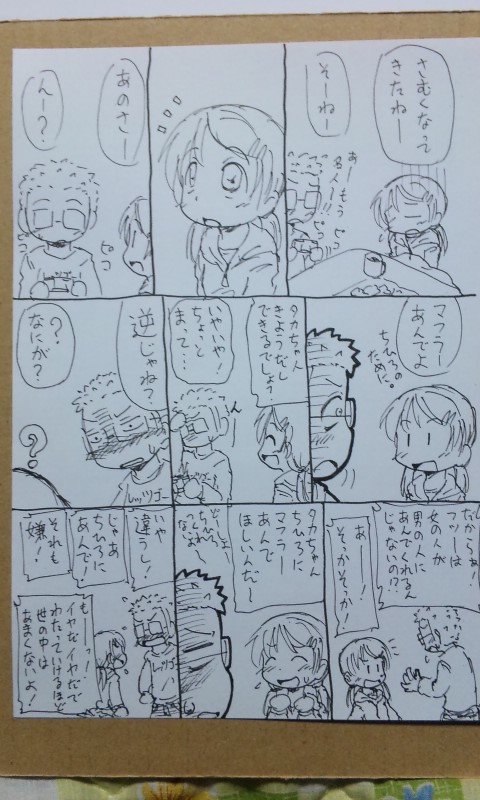 さむくなって
きたねー
そーねー
あーもう
あのさー
んー？
マフラー
あんでよ
ちひろの
ために。
タカちゃん
きようだし
できるでしょ？
いやいや！
ちょっと
まって…
逆じゃね？
レッツゴー
？
なにが？
だからぁ！
フツーは
女の人が
男の人に
あんでくれるん
じゃないの！？
あーー！
そっかそっか！
タカちゃん
ちひろに
マフラー
あんで
ほしいんだ〜
いや
違うし！
じゃあ
ちひろに
あんで！
それも
嫌！
レッツゴー
もーーっ！
イヤだイヤだで
わたっていけるほど
世の中は
あまくないよ！